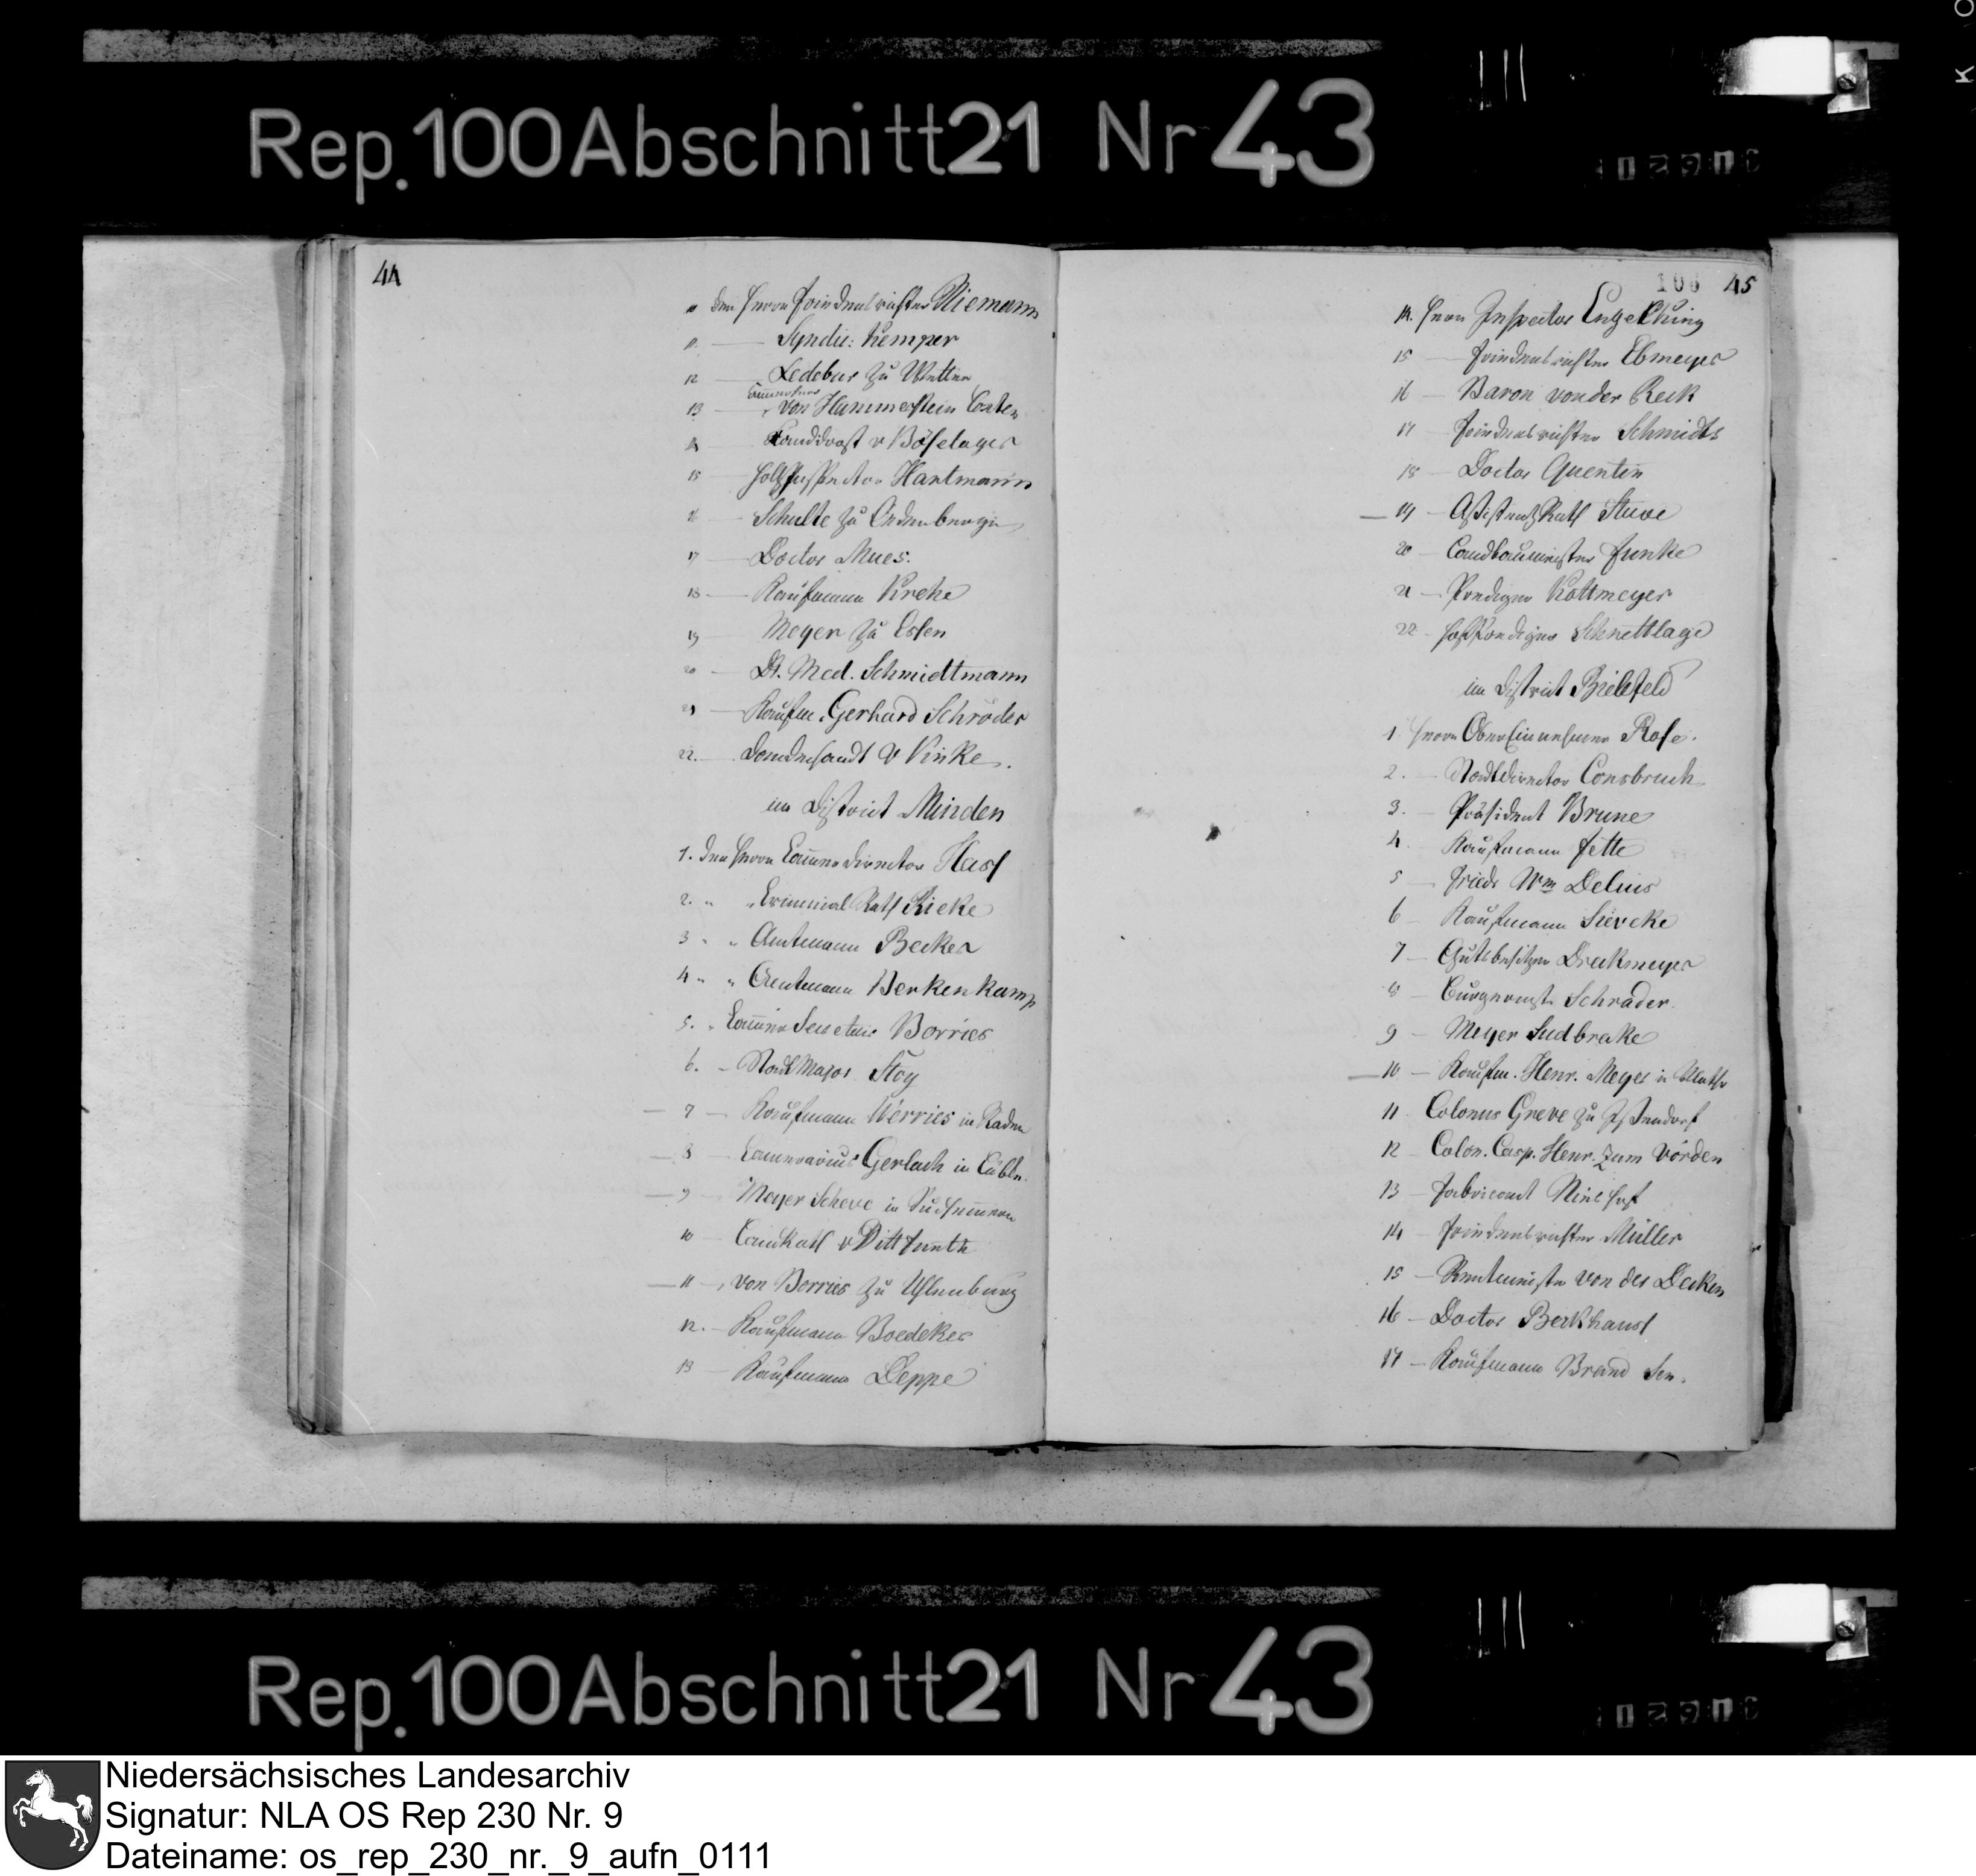 Rep. 100 Abschnitt 21 Nr 43
44
10 dem Herrn Friedensrichter Niemann
11. — Syndic: Kemper
12 — Ledebur zu Wetter
Cammerherr
13 — von Hammerstein Loxten
14 — Landdrost v Böselager
15 — Holzinspector Hartmann
16 — Schulte zu
17 — Doctor Mues.
18 — Kaufmann Krehe
19 — Meyer zu Essen
20 — Dr. Med. Schmidtmann
21 — Kaufm. Gerhard Schröder
22. — Domdechant v Vinke.
im District Minden
1. dem Herrn Cammerdirector Hass
2. " " Criminal Rath Rieke
3 " " Amtmann Becker
4 " " Amtmann Berkenkamp
5. " Cammer Secretair Borries
6. — Stadt Major Stoy
7 — Kaufmann Werries in Raden
8 — Cammerarius Gerlach in Lübke.
9 — Meyer Scheve in Südhemmern
10 — Landrath v Dittfurth
11 — von Borries zu Uhlenburg
12. — Kaufmann Boedeker
13 — Kaufmann Deppe
106 45
14. Herrn Inspector Engelking
15 — Friedensrichter Ebmeyer
16 — Baron von der Reck
17 — Friedensrichter Schmidts
18 — Doctor Quentin
19 — Assistenz Rath Stuve
20 — Landbaumeister Funke
21 — Prediger Kottmeyer
22 — Hofprediger Schnettlage
im District Bielefeld
1. Herrn Ober Einnehmer Rose.
2. — Stadtdirector Consbruch
3. — Präsident Brune
4. — Kaufmann Fette
5 — Friedr Wm Delius
6 — Kaufmann Sievcke
7 — Gutsbesitzer Dreckmeyer
8 — Burgermstr Schrader.
9 — Meyer Sudbrake
10 — Kaufm. Henr. Meyer in
11 — Colonus Greve zu
12 — Colon. Casp. Henr. zum Vörden
13 — Fabricant
14 — Friedensrichter Müller
15 — Rentmeister von der Decken
16 — Doctor
17 — Kaufmann Brand Sen.
Rep. 100 Abschnitt 21 Nr 43
Niedersächsisches Landesarchiv
Signatur: NLA OS Rep 230 Nr. 9
Dateiname: os_rep_230_nr._9_aufn_0111